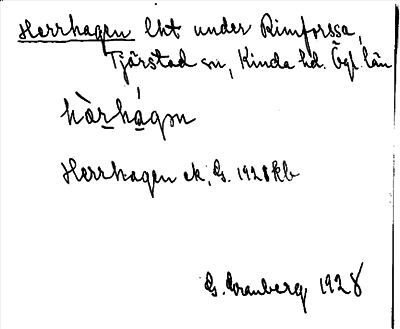 Herrhagen lht under Rimforssa,
Tjärstad sn, Kinda hd. Ögl. län
hàrhágən
Herrhagen ek, G. 1928 kb
G. Granberg 1928